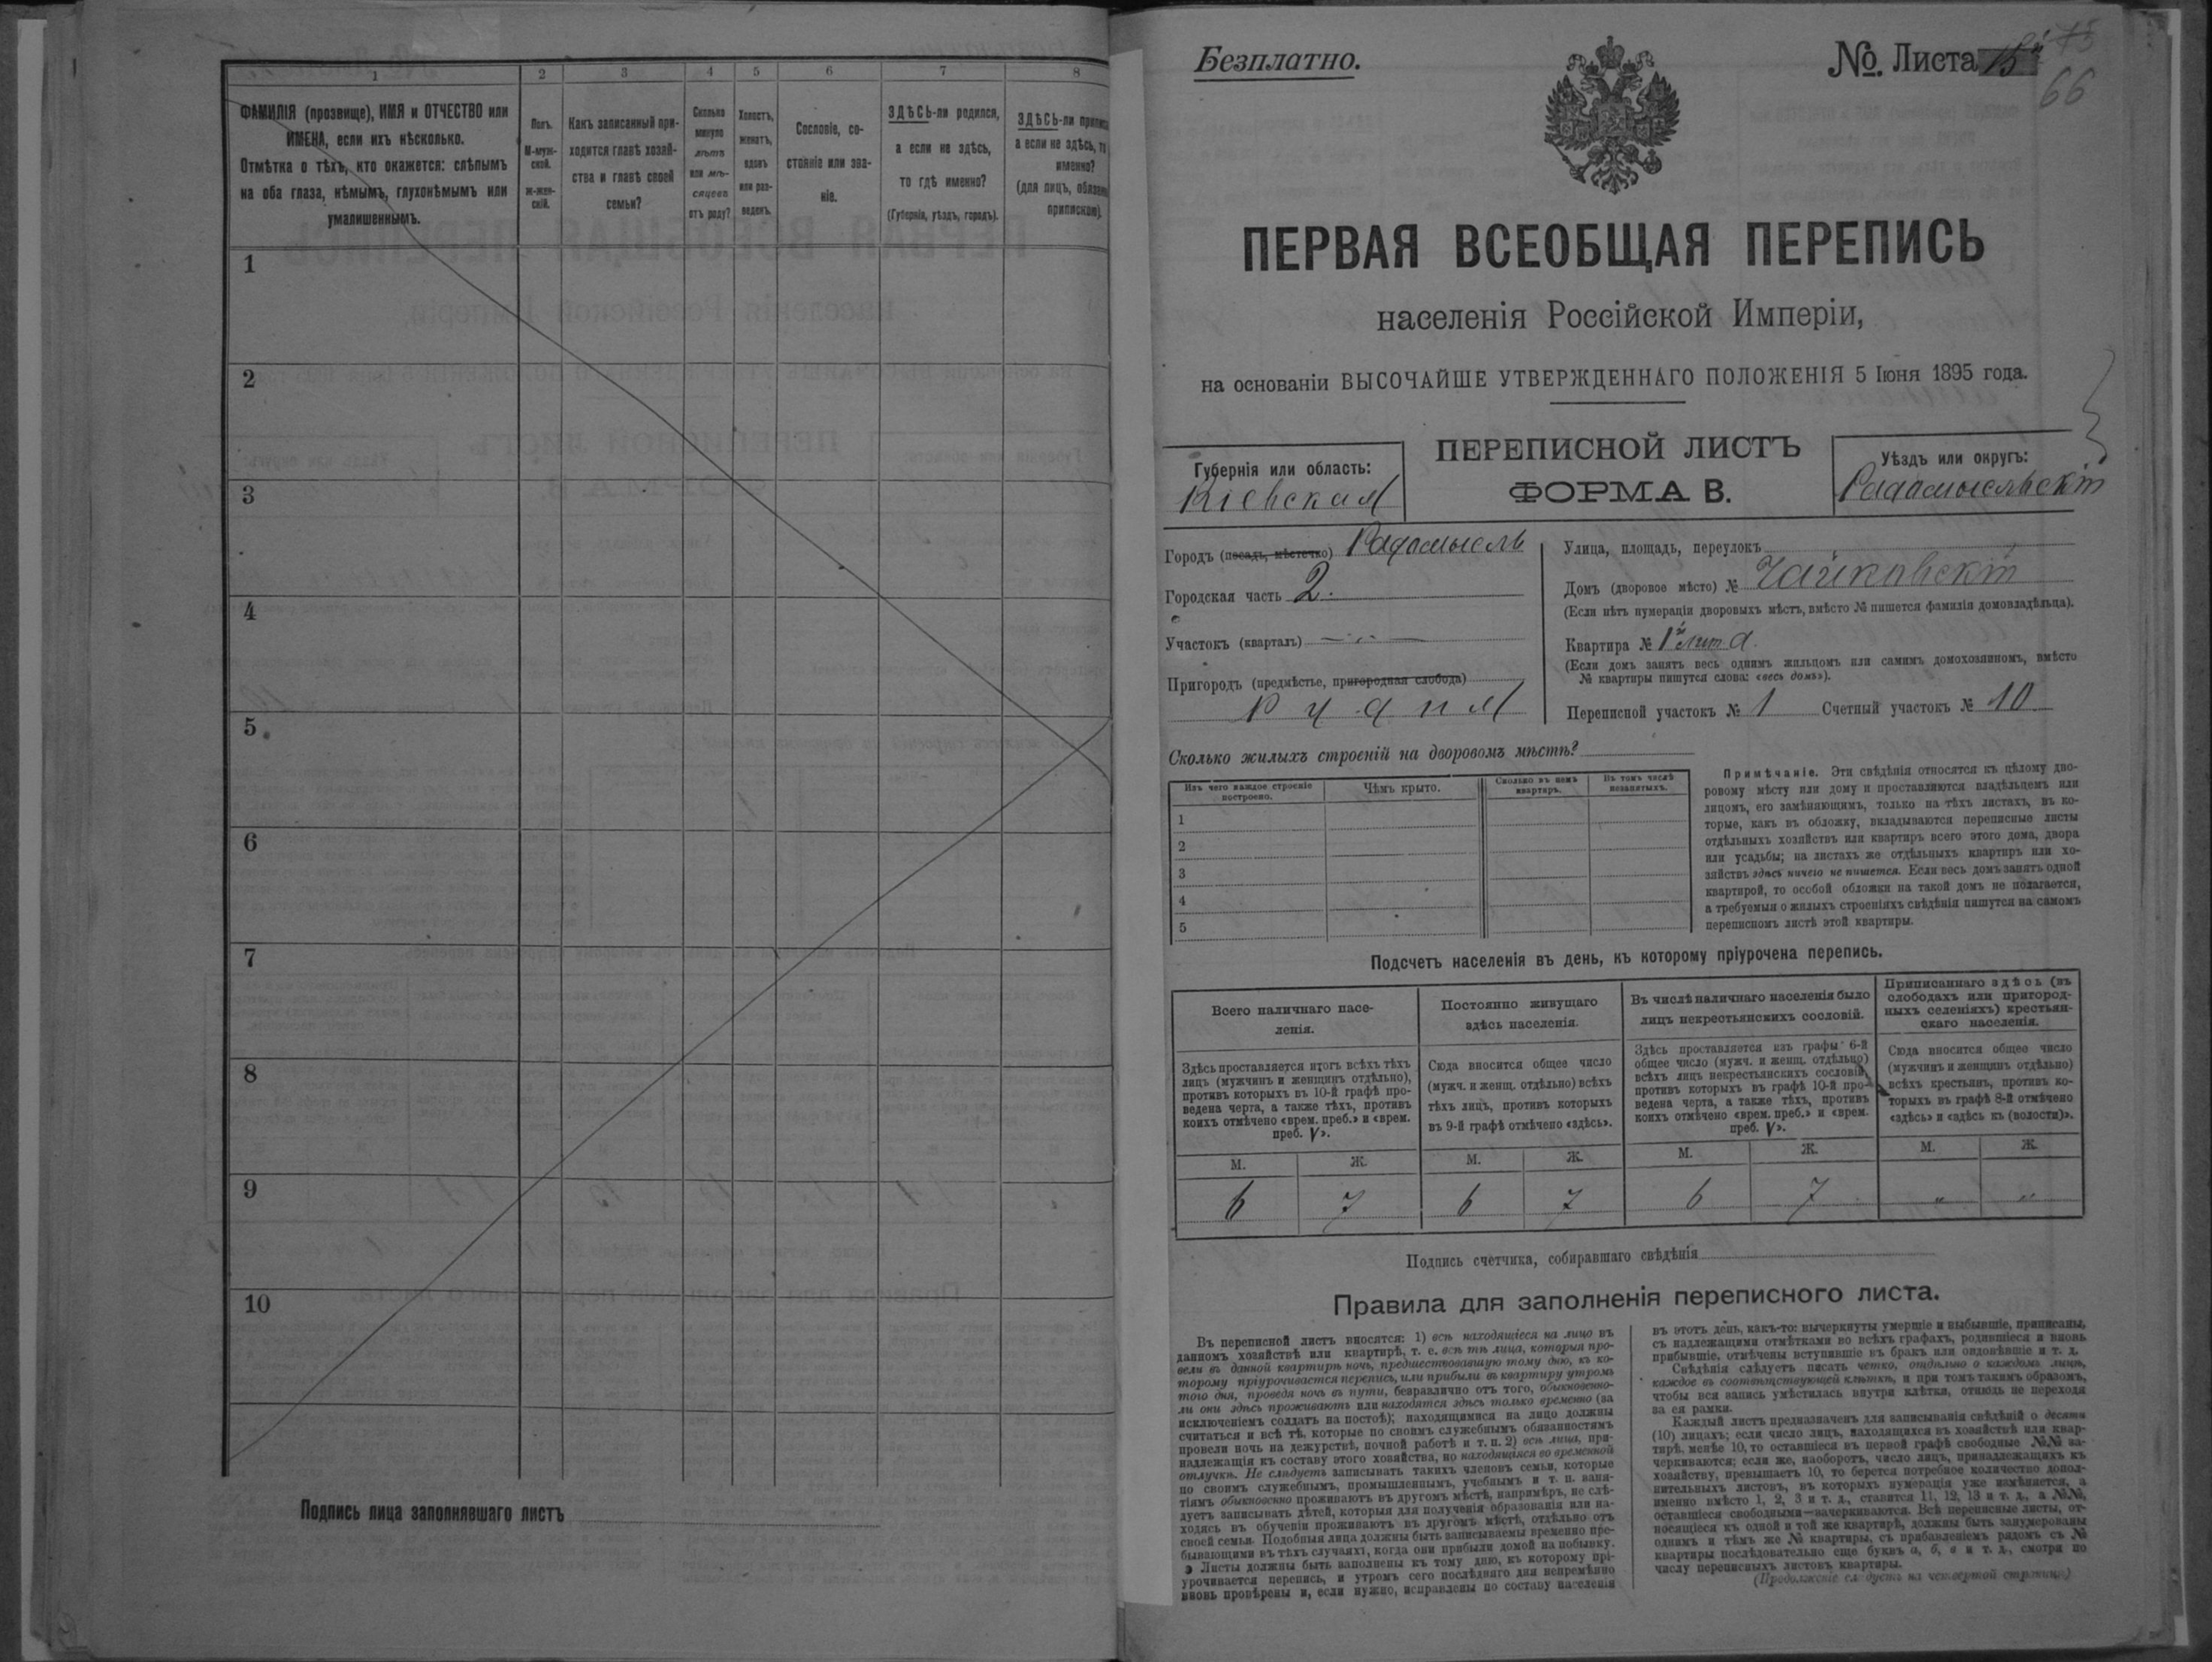 1 2 3 4 5 6 7 8
ФАМИЛІЯ (прозвище), ИМЯ и ОТЧЕСТВО или
ИМЕНА, если ихъ нѣсколько.
Отмѣтка о тѣхъ, кто окажется: слѣпымъ
на оба глаза, нѣмымъ, глухонѣмымъ или
умалишеннымъ.
Полъ.
М-муж-
ской.
Ж-жен-
скій.
Какъ записанный при-
ходится главѣ хозяй-
ства и главѣ своей
семьи?
Сколько
минуло
лѣтъ
или мѣ-
сяцевъ
отъ роду?
Холостъ,
женатъ,
вдовъ
или раз-
веденъ.
Сословіе, со-
стояніе или зва-
ніе.
ЗДѢСЬ-ли родился,
а если не здѣсь,
то гдѣ именно?
(Губернія, уѣздъ, городъ).
ЗДѢСЬ-ли
а если не здѣсь,
именно?
(для лицъ,
припискою)
1
2
3
4
5
6
7
8
9
10
Подпись лица заполнявшаго листъ
Безплатно.
№ Листа 15
66
ПЕРВАЯ ВСЕОБЩАЯ ПЕРЕПИСЬ
населенія Россійской Имперіи,
на основаніи ВЫСОЧАЙШЕ УТВЕРЖДЕННАГО ПОЛОЖЕНІЯ 5 Іюня 1895 года.
Губернія или область:
Кіевская
ПЕРЕПИСНОЙ ЛИСТЪ
ФОРМА В.
Уѣздъ или округъ:
Радомысльскій
Городъ (посадъ, мѣстечко) Радомысль
Городская часть 2.
Участокъ (кварталъ)
Пригородъ (предмѣстье, пригородная слобода)
Рудня
Улица, площадь, переулокъ
Домъ (дворовое мѣсто) № Чайковскій
(Если нѣтъ нумераціи дворовыхъ мѣстъ, вмѣсто № пишется фамилія домовладѣльца).
Квартира № 1й лит а.
(Если домъ занятъ весь однимъ жильцомъ или самимъ домохозяиномъ, вмѣсто
№ квартиры пишутся слова: «весь домъ»).
Переписной участокъ № 1 Счетный участокъ № 10
Сколько жилыхъ строеній на дворовомъ мѣстѣ?
Изъ чего каждое строеніе
построено.
Чѣмъ крыто.
Сколько въ немъ
квартиръ.
Въ томъ числѣ
незанятыхъ.
1
2
3
4
5
Примѣчаніе. Эти свѣдѣнія относятся къ цѣлому дво-
ровому мѣсту или дому и проставляются владѣльцемъ или
лицомъ, его замѣняющимъ, только на тѣхъ листахъ, въ ко-
торые, какъ въ обложку, вкладываются переписные листы
отдѣльныхъ хозяйствъ или квартиръ всего этого дома, двора
или усадьбы; на листахъ же отдѣльныхъ квартиръ или хо-
зяйствъ здѣсь ничего не пишется. Если весь домъ занятъ одной
квартирой, то особой обложки на такой домъ не полагается,
а требуемыя о жилыхъ строеніяхъ свѣдѣнія пишутся на самомъ
переписномъ листѣ этой квартиры.
Подсчетъ населенія въ день, къ которому пріурочена перепись.
Всего наличнаго насе-
ленія.
Постоянно живущаго
здѣсь населенія.
Въ числѣ наличнаго населенія было
лицъ некрестьянскихъ сословій.
Приписаннаго здѣсь (въ
слободахъ или пригород-
ныхъ селеніяхъ) крестьян-
скаго населенія.
Здѣсь проставляется итогъ всѣхъ тѣхъ
лицъ (мужчинъ и женщинъ отдѣльно),
противъ которыхъ въ 10-й графѣ про-
ведена черта, а также тѣхъ, противъ
коихъ отмѣчено «врем. преб.» и «врем.
преб. V».
Сюда вносится общее число
(мужч. и женщ. отдѣльно) всѣхъ
тѣхъ лицъ, противъ которыхъ
въ 9-й графѣ отмѣчено «здѣсь».
Здѣсь проставляется изъ графы 6-й
общее число (мужч. и женщ. отдѣльно)
всѣхъ лицъ некрестьянскихъ сословій,
противъ которыхъ въ графѣ 10-й про-
ведена черта, а также тѣхъ, противъ
коихъ отмѣчено «врем. преб.» и «врем.
преб. V».
Сюда вносится общее число
(мужчинъ и женщинъ отдѣльно)
всѣхъ крестьянъ, противъ ко-
торыхъ въ графѣ 8-й отмѣчено
«здѣсь» и «здѣсь къ (волости)».
М. Ж. М. Ж. М. Ж. М. Ж.
6 7 6 7 6 7 " "
Подпись счетчика, собиравшаго свѣдѣнія
Правила для заполненія переписного листа.
Въ переписной листъ вносятся: 1) всѣ находящіеся на лицо въ
данномъ хозяйствѣ или квартирѣ, т. е. всѣ тѣ лица, которыя про-
вели въ данной квартирѣ ночь, предшествовавшую тому дню, къ ко-
торому пріурочивается перепись, или прибыли въ квартиру утромъ
того дня, проведя ночь въ пути, безразлично отъ того, обыкновенно-
ли они здѣсь проживаютъ или находятся здѣсь только временно (за
исключеніемъ солдатъ на постоѣ); находящимися на лицо должны
считаться и всѣ тѣ, которые по своимъ служебнымъ обязанностямъ
провели ночь на дежурствѣ, ночной работѣ и т. п. 2) всѣ лица, при-
надлежащія къ составу этого хозяйства, но находящіяся во временной
отлучкѣ. Не слѣдуетъ записывать такихъ членовъ семьи, которые
по своимъ служебнымъ, промышленнымъ, учебнымъ и т. п. заня-
тіямъ обыкновенно проживаютъ въ другомъ мѣстѣ, напримѣръ, не слѣ-
дуетъ записывать дѣтей, которыя для полученія образованія или на-
ходясь въ обученіи проживаютъ въ другомъ мѣстѣ, отдѣльно отъ
своей семьи. Подобныя лица должны быть записываемы временно пре-
бывающими въ тѣхъ случаяхъ, когда они прибыли домой на побывку.
Листы должны быть заполнены къ тому дню, къ которому прі-
урочивается перепись, и утромъ сего послѣдняго дня непремѣнно
вновь провѣрены и, если нужно, исправлены по составу населенія
въ этотъ день, какъ-то: вычеркнуты умершіе и выбывшіе, приписаны,
съ надлежащими отмѣтками во всѣхъ графахъ, родившіеся и вновь
прибывшіе, отмѣчены вступившіе въ бракъ или овдовѣвшіе и т. д.
Свѣдѣнія слѣдуетъ писать четко, отдѣльно о каждомъ лицѣ,
каждое въ соотвѣтствующей клѣткѣ, и при томъ такимъ образомъ,
чтобы вся запись умѣстилась внутри клѣтки, отнюдь не переходя
за ея рамки.
Каждый листъ предназначенъ для записыванія свѣдѣній о десяти
(10) лицахъ; если число лицъ, находящихся въ хозяйствѣ или квар-
тирѣ, менѣе 10, то оставшіеся въ первой графѣ свободные №№ за-
черкиваются; если же, наоборотъ, число лицъ, принадлежащихъ къ
хозяйству, превышаетъ 10, то берется потребное количество допол-
нительныхъ листовъ, въ которыхъ нумерація уже измѣняется, а
именно вмѣсто 1, 2, 3 и т. д., ставится 11, 12, 13 и т. д., а №№,
оставшіеся свободными—зачеркиваются. Всѣ переписные листы, от-
носящіеся къ одной и той же квартирѣ, должны быть занумерованы
однимъ и тѣмъ же № квартиры, съ прибавленіемъ рядомъ съ №
квартиры послѣдовательно еще буквъ а, б, в и т. д., смотря по
числу переписныхъ листовъ квартиры.
(Продолженіе слѣдуетъ на четвертой страницѣ)